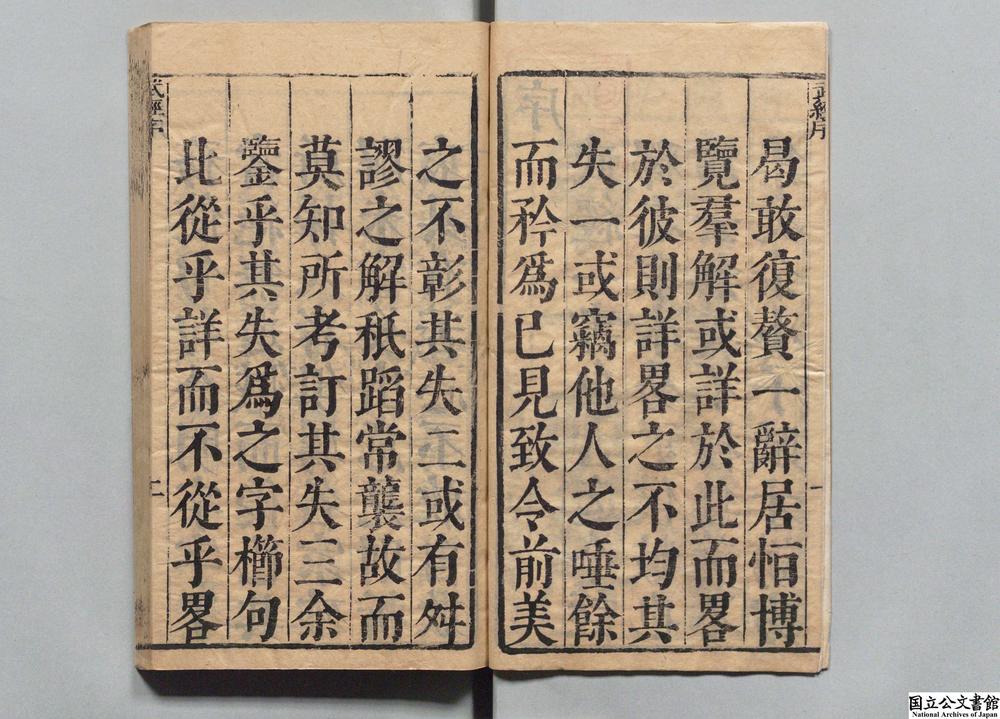 曷敢復贅一辭居恒博
覽羣解或詳於此而畧
於彼則詳畧之不均其
失一或竊他人之唾餘
而矜爲已見致令前美
之不彰其失二或有舛
謬之解秖蹈常襲故而
莫知所考訂其失三余
鑒乎其失爲之字櫛句
比從乎詳而不從乎畧
武經序
一
武經序
二
国立公文書館
National Archives of Japan